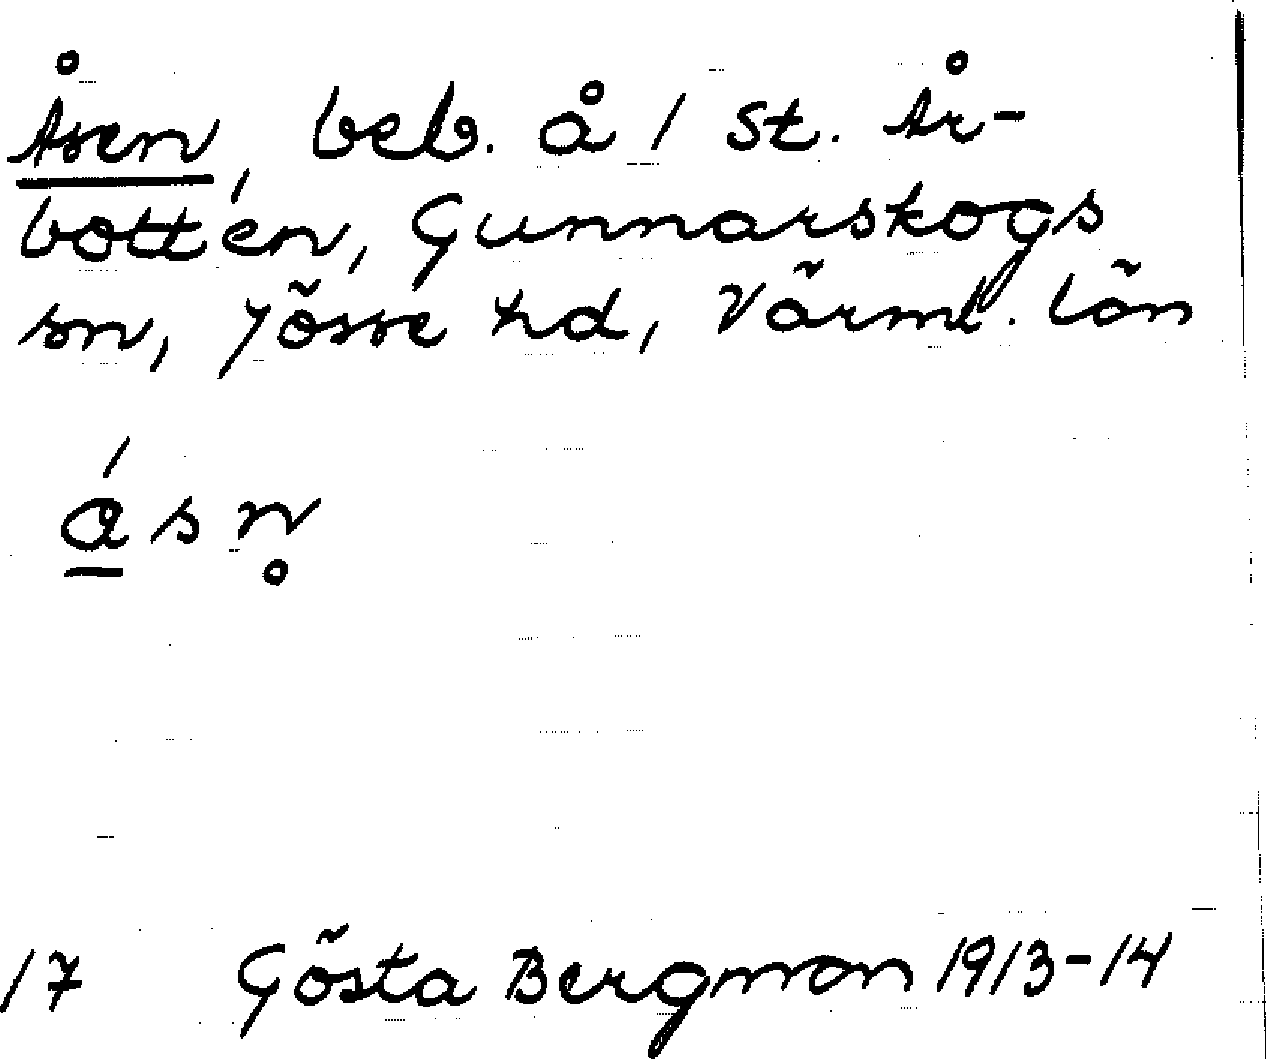 Åsen, beb. å 1 st. År-
botten, Gunnarskogs
sn, Jösse hd, Värml. län
ásn̥
17 Gösta Bergman 1913-14